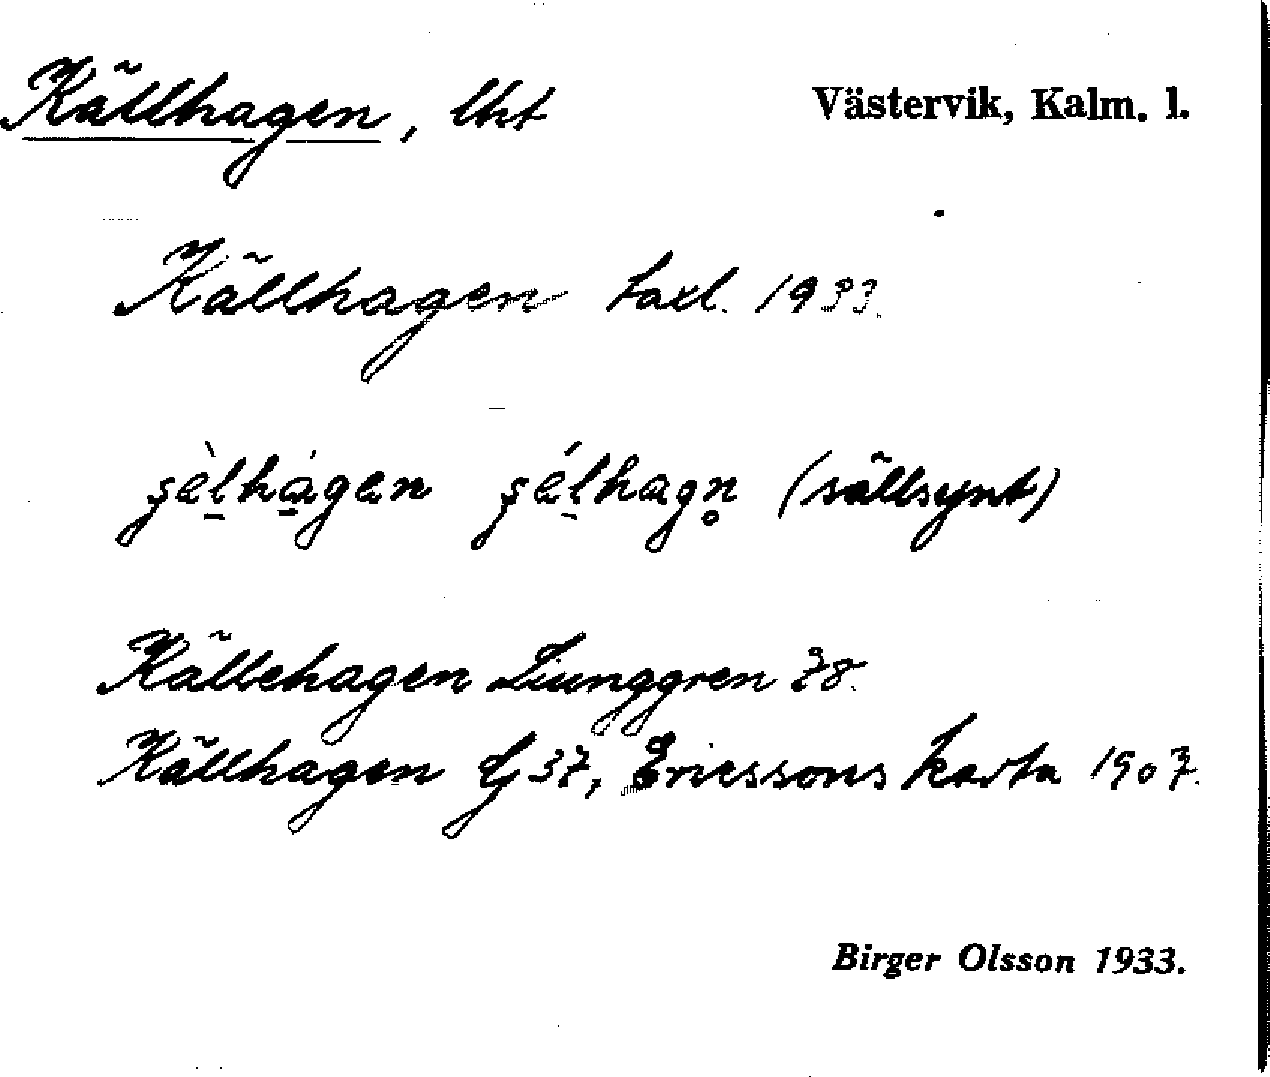 Källhagen, lht
Västervik, Kalm. l.
Källhagen taxl. 1933.
şèlhàgen şélhagn̥ (sällsynt)
Källehagen Liunggren 78.
Källhagen G 37, Ericssons karta 1907.
Birger Olsson 1933.